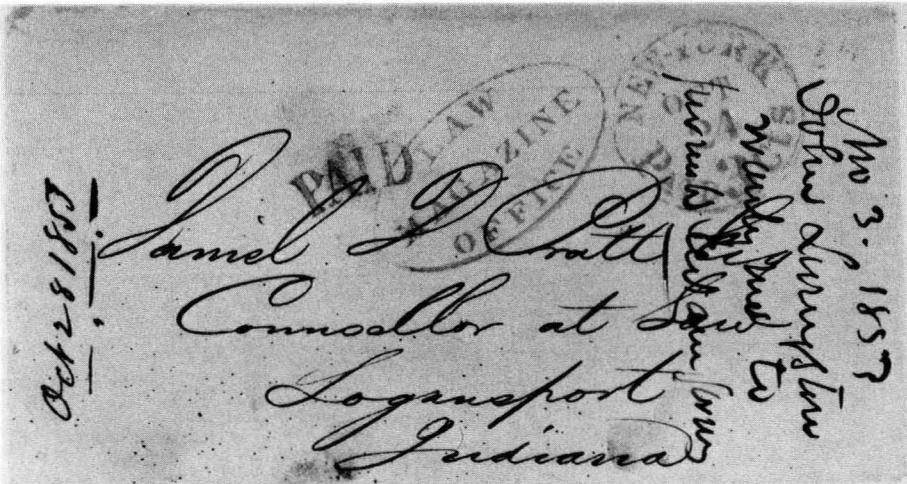 PAID
LAW
MAGAZINE
OFFICE
NEW-YORK
Daniel D Pratt
Counsellor at Law
Logansport
Indiana
Oct 28 1853
3. 1853
John Livingston
to